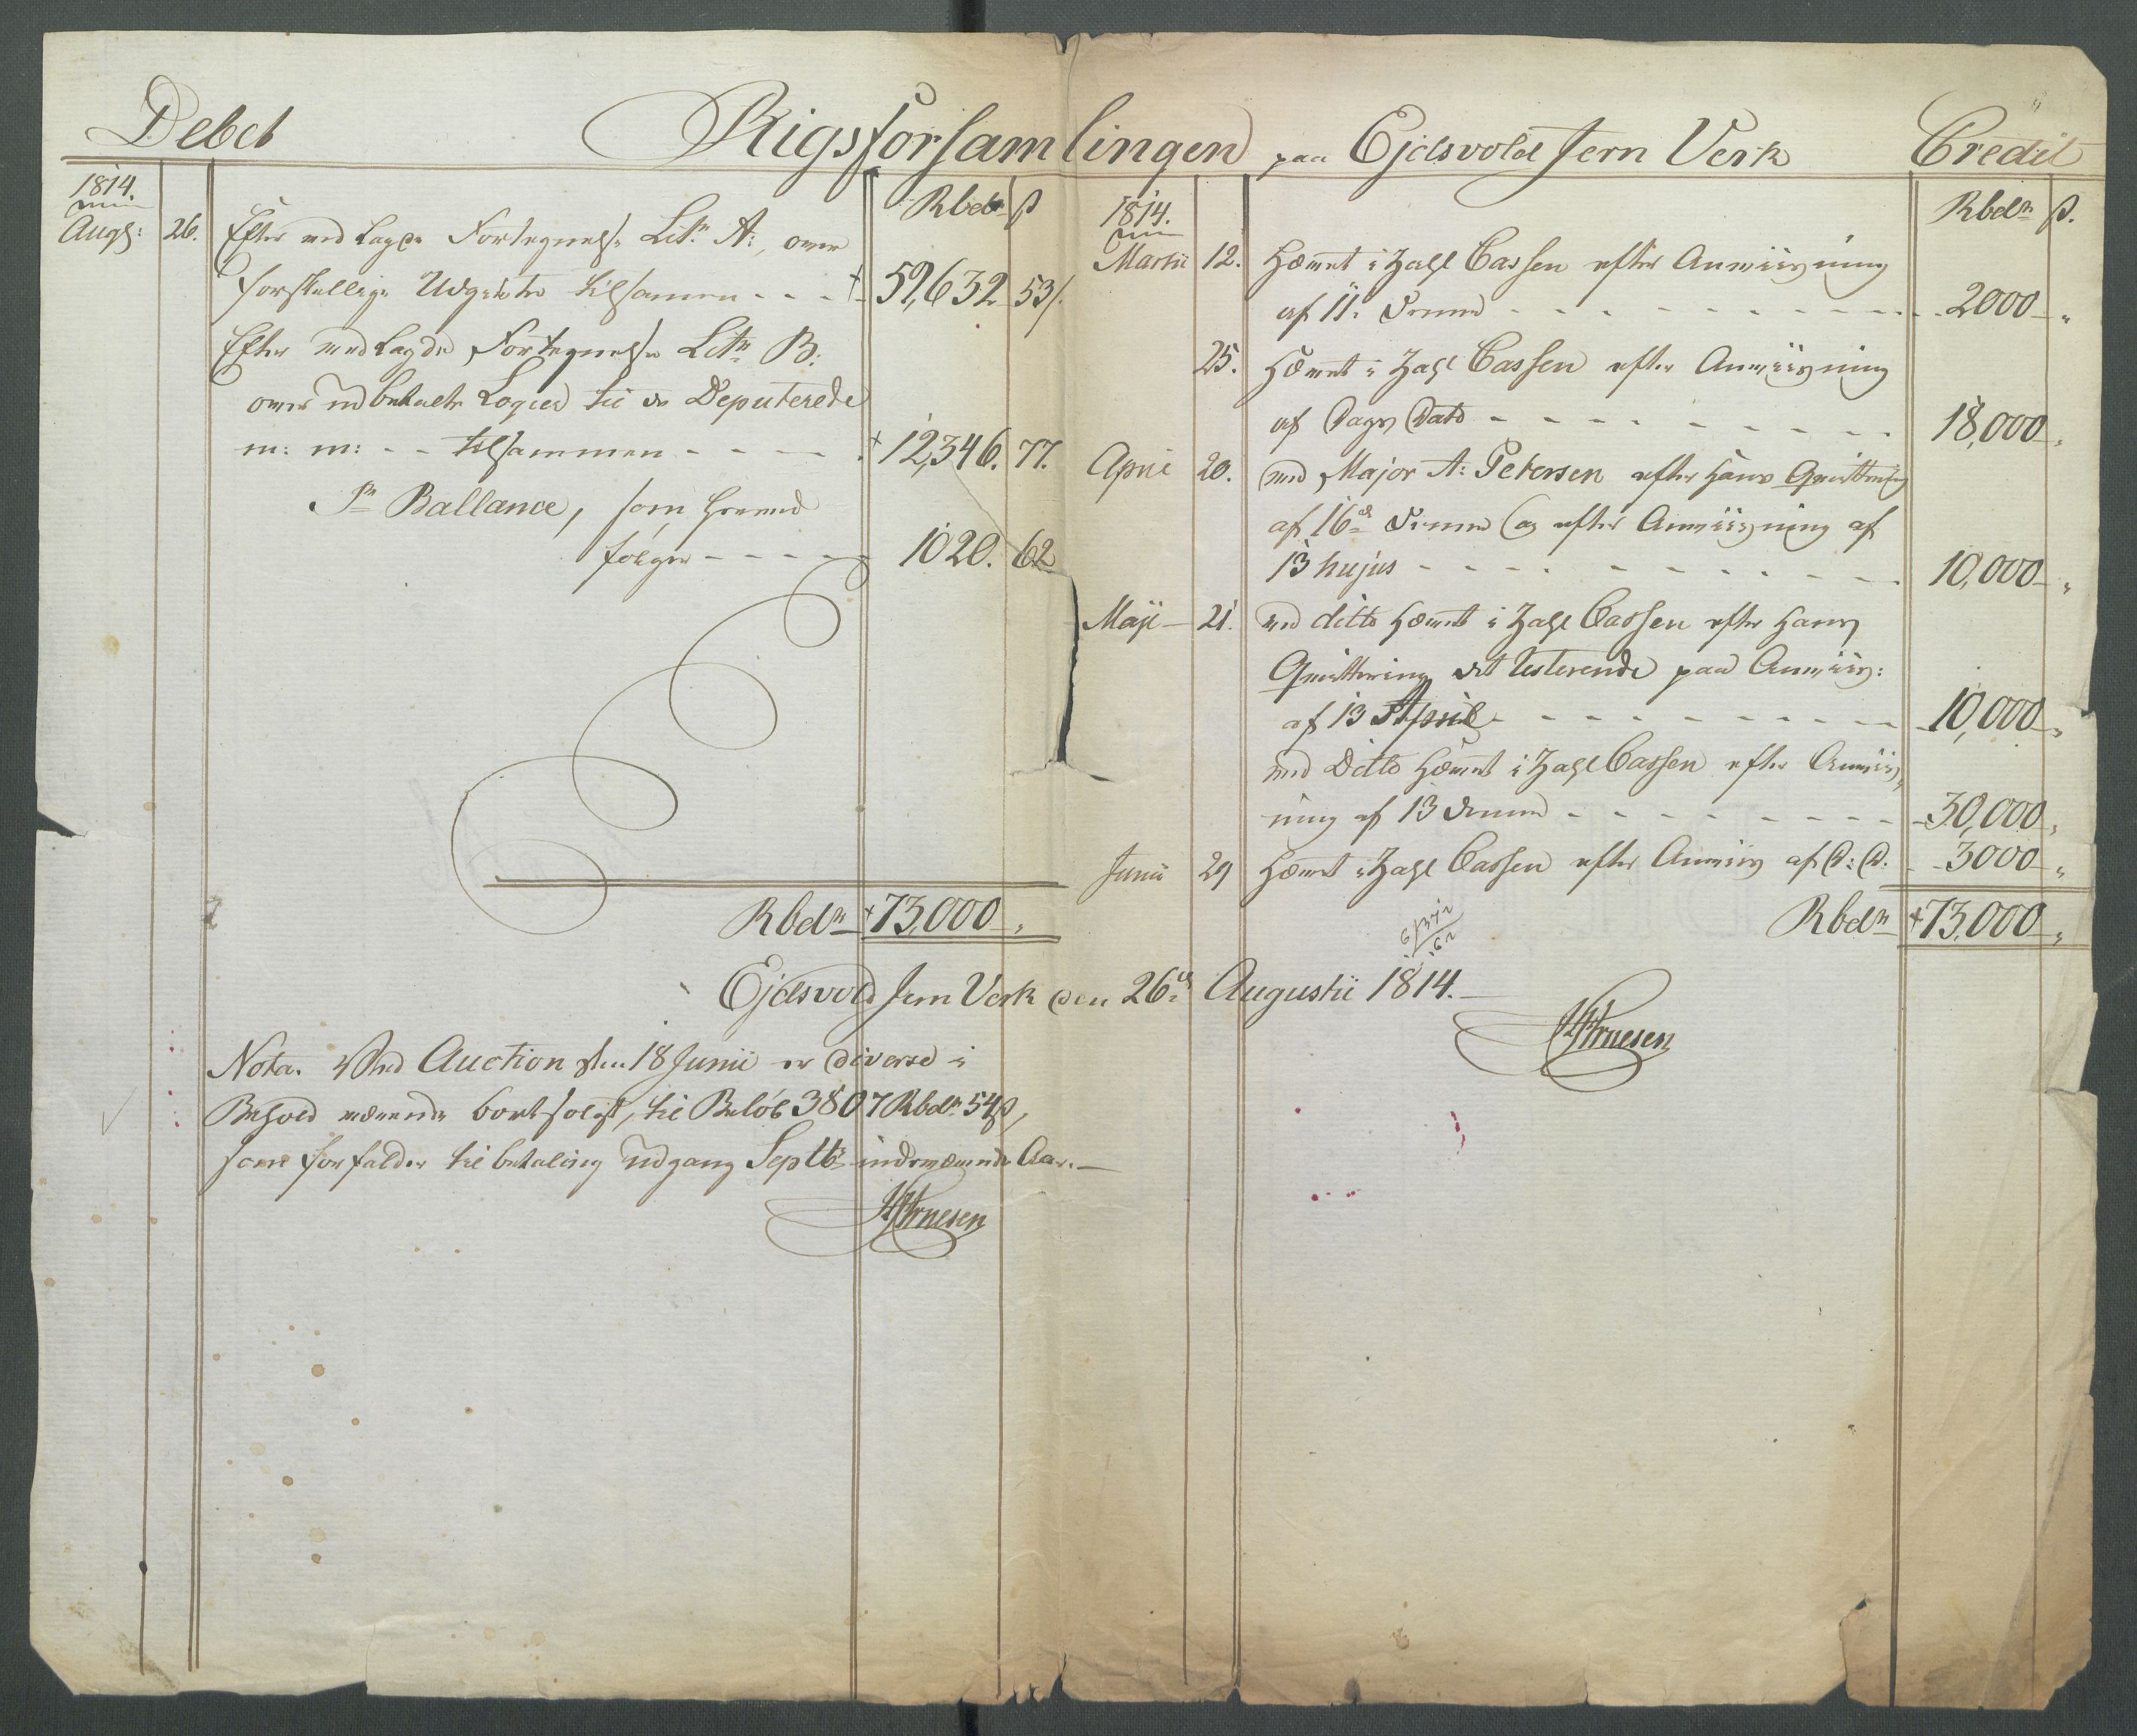 Debet Rigsforsamlingen paa Ejdsvold Jern Verk Credit
1814. Rbdr ß
Augs: 26. Efter medlagde Fortegnelse Litr. A:, over
forskellige Udgivter tilsamen - - - 59,632 53/.
Efter medlagde Fortegnelse Litr B:
over udbetalte Logies til de Deputerede
m: m: - - tilsammen - - - - 12,346. 77.
Pr Ballance, som herved
følger - - - - - 1020. 62
Rbdr 73,000 „
1814. Rbdr ß.
Martii 12. Hævet i Zahl Cassen efter Anviisning
af 11. Denne - - - - - - - - - 2000 „
25. Hævet i Zahl Cassen efter Anviisning
af Dags Dato - - - - - - - - - 18,000 „
April 20. ved Major A: Petersen efter hans Qvittering
af 16de Denne og efter Anviisning af
13 hujus - - - - - - - - - - 10,000 „
Maji 21. ved ditto hævet i Zahl Cassen efter hans
Qvittering det resterende paa Anviis:
af 13 April - - - - - - - - - 10,000 „
ved Ditto hævet i Zahl Cassen efter Anviis„
ning af 13 Denne - - - - - - - - 30,000 „
Junii 29 Hævet i Zahl Cassen efter Anviis af D: D. - 3000 „
Rbdr 73,000 „
Ejdsvold Jern Verk den 26de Augustii 1814.
Nota. Ved Auction den 18 Junii er diverse i
Behold værende bortsolgt, til Beløb 3807 Rbdr 54ß,
som forfalder til betaling Udgang Septbr indeværende Aar.